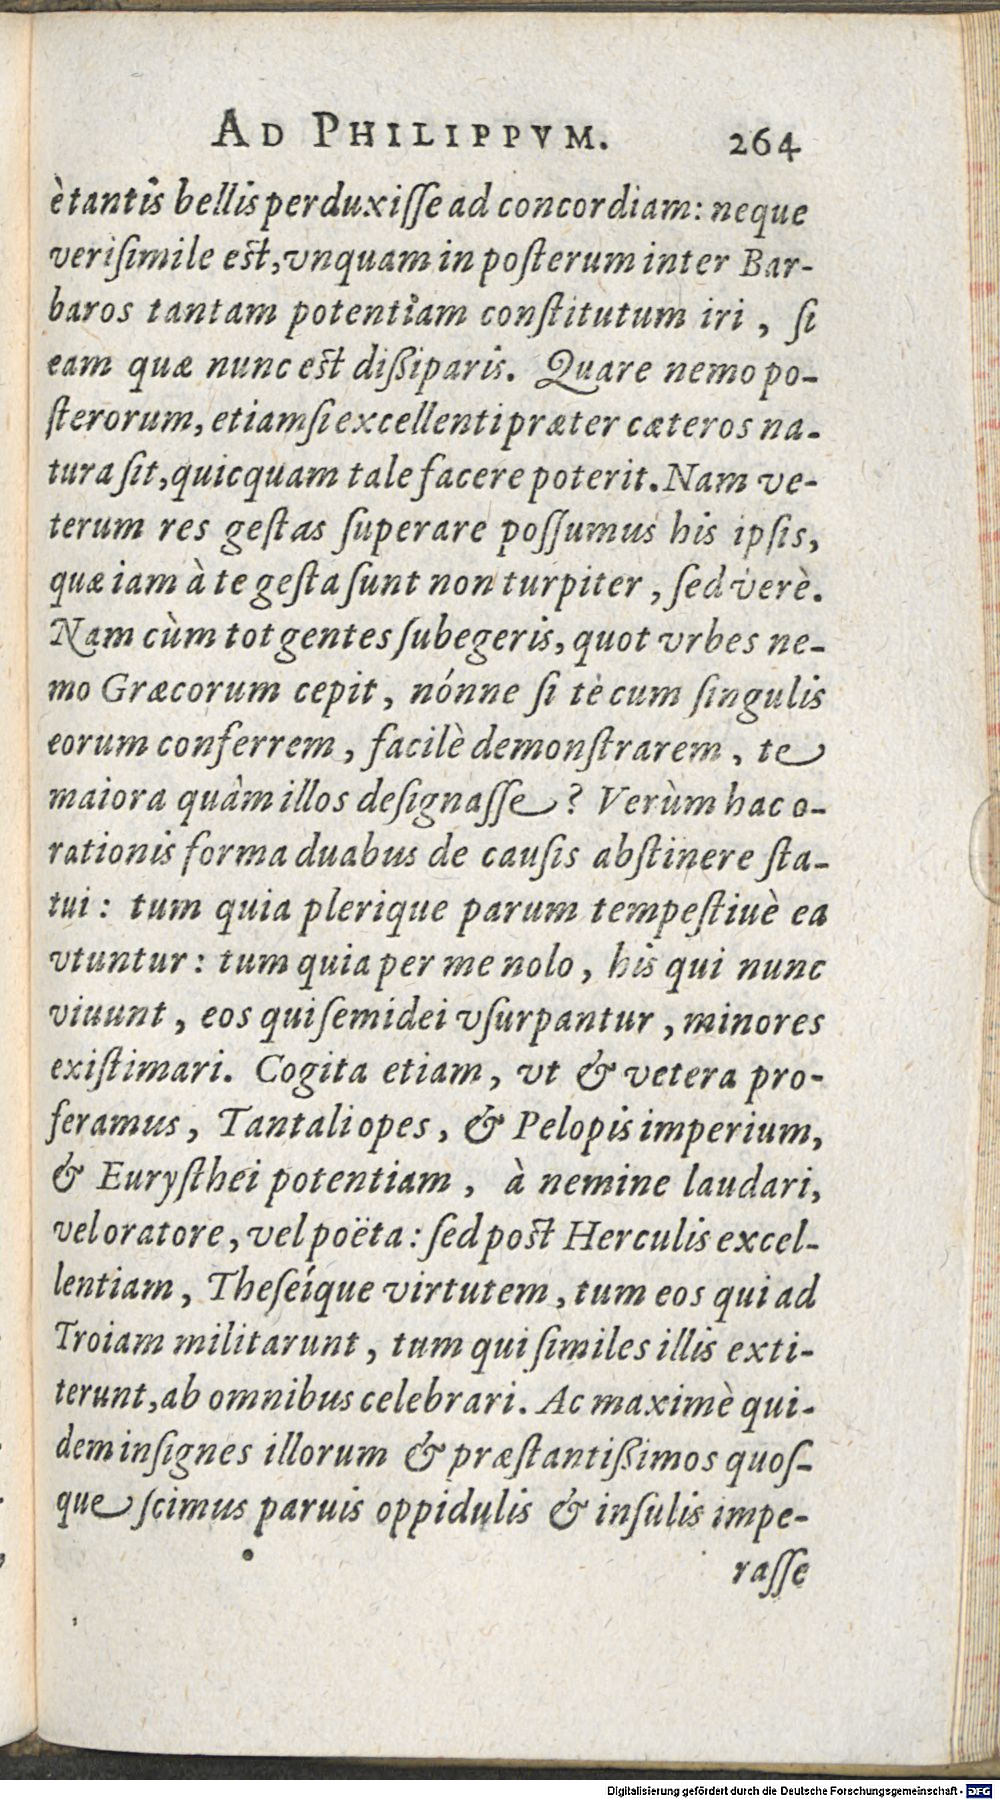 AD PHILIPPVM. 264
è tantis bellis perduxiſſe ad concordiam: neque
veriſimile eſt, vnquam in poſterum inter Bar-
baros tantam potentiam conſtitutum iri, ſi
eam quæ nunc eſt diſſiparis. Quare nemo po-
ſterorum, etiamſi excellenti præter cæteros na-
tura ſit, quicquam tale facere poterit. Nam ve-
terum res geſtas ſuperare poſſumus his ipſis,
quæ iam à te geſta ſunt non turpiter, ſed verè.
Nam cùm tot gentes ſubegeris, quot vrbes ne-
mo Græcorum cepit, nónne ſi tè cum ſingulis
eorum conferrem, facilè demonſtrarem, te
maiora quàm illos deſignaſſe? Verùm hac o-
rationis forma duabus de cauſis abſtinere ſta-
tui: tum quia plerique parum tempeſtiuè ea
vtuntur: tum quia per me nolo, his qui nunc
viuunt, eos qui ſemidei vſurpantur, minores
exiſtimari. Cogita etiam, vt & vetera pro-
feramus, Tantali opes, & Pelopis imperium,
& Euryſthei potentiam, à nemine laudari,
vel oratore, vel poëta: ſed poſt Herculis excel-
lentiam, Theſeíque virtutem, tum eos qui ad
Troiam militarunt, tum qui ſimiles illis exti-
terunt, ab omnibus celebrari. Ac maximè qui-
dem inſignes illorum & præſtantiſſimos quoſ-
que ſcimus paruis oppidulis & inſulis impe-
raſſe
Digitalisierung gefördert durch die Deutsche Forschungsgemeinschaft - DFG